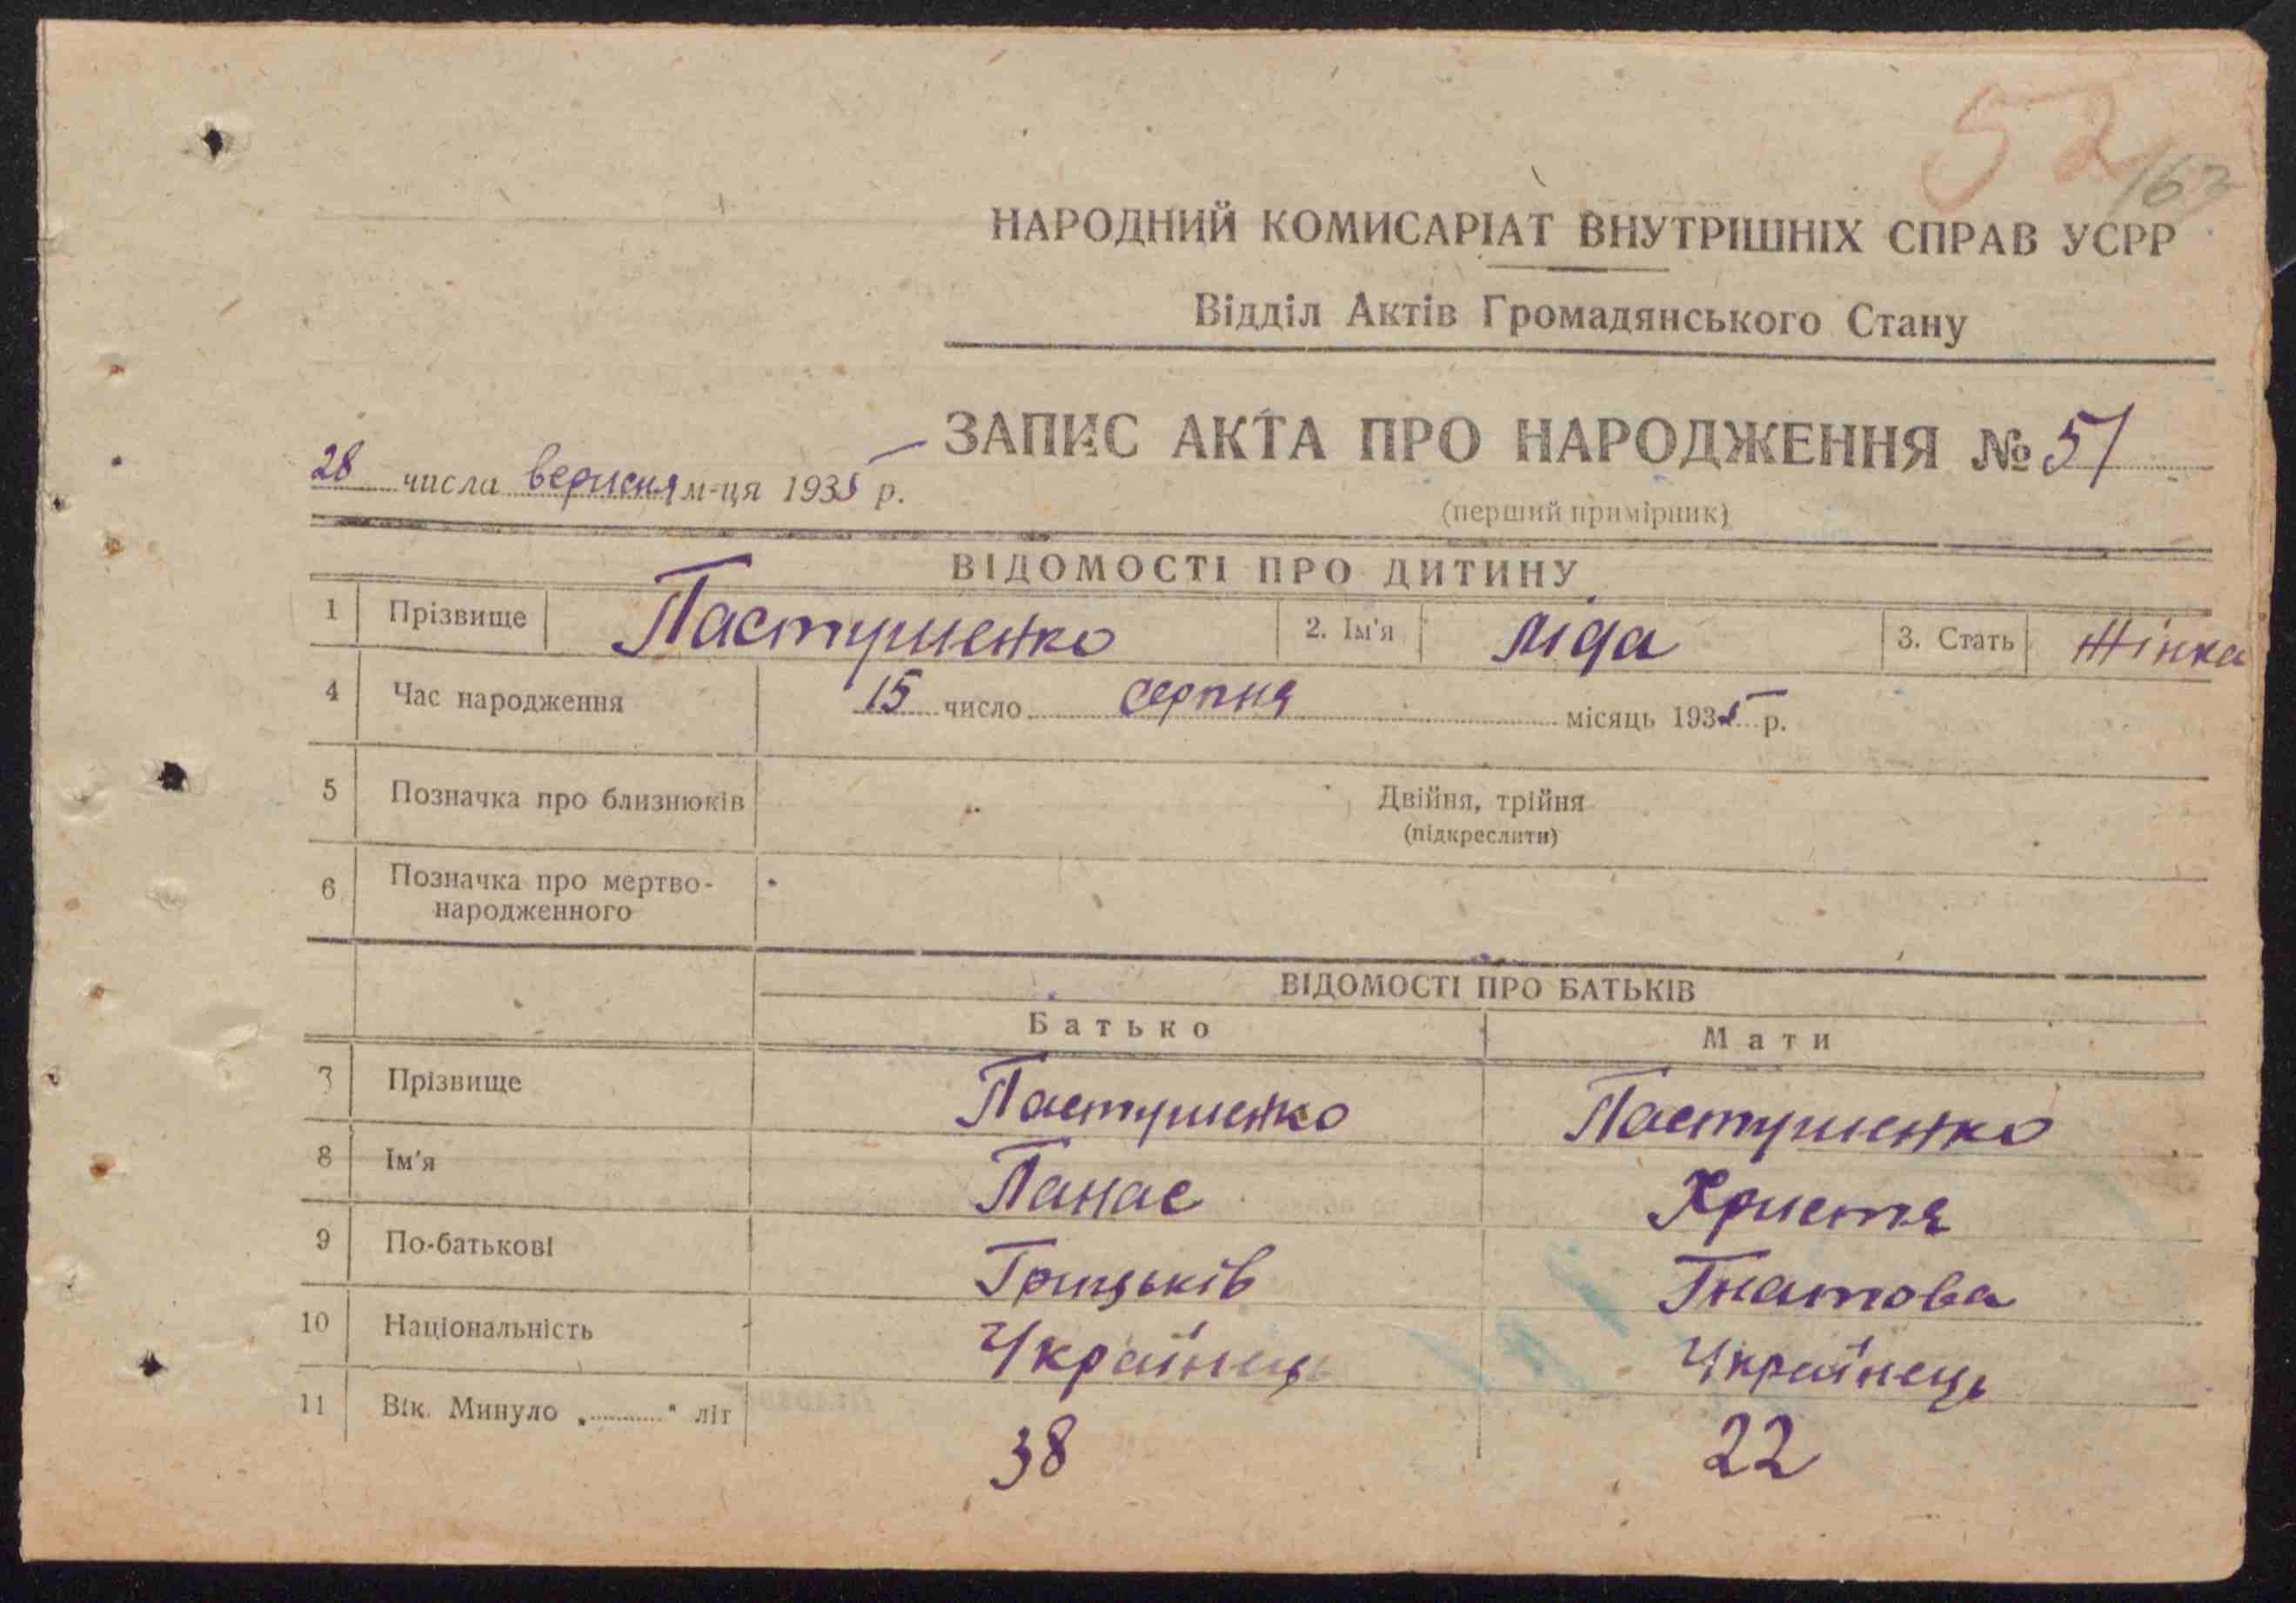 52
163
НАРОДНИЙ КОМИСАРІАТ ВНУТРІШНІХ СПРАВ УСРР
Відділ Актів Громадянського Стану
ЗАПИС АКТА ПРО НАРОДЖЕННЯ № 51
28 числа вересня м-ця 1935 р.
(перший примірник)
ВІДОМОСТІ ПРО ДИТИНУ
1 Прізвище Пастушенко 2. Ім'я Ліда 3. Стать Жінка
4 Час народження 15 число серпня місяць 1935 р.
5 Позначка про близнюків Двійня, трійня
(підкреслити)
6 Позначка про мертво-
народженного
ВІДОМОСТІ ПРО БАТЬКІВ
Батько Мати
7 Прізвище Пастушенко Пастушенко
8 Ім'я Панас Христя
9 По-батькові Грицьків Гнатова
10 Національність Українець Українець
11 Вік. Минуло „..........“ літ 38 22